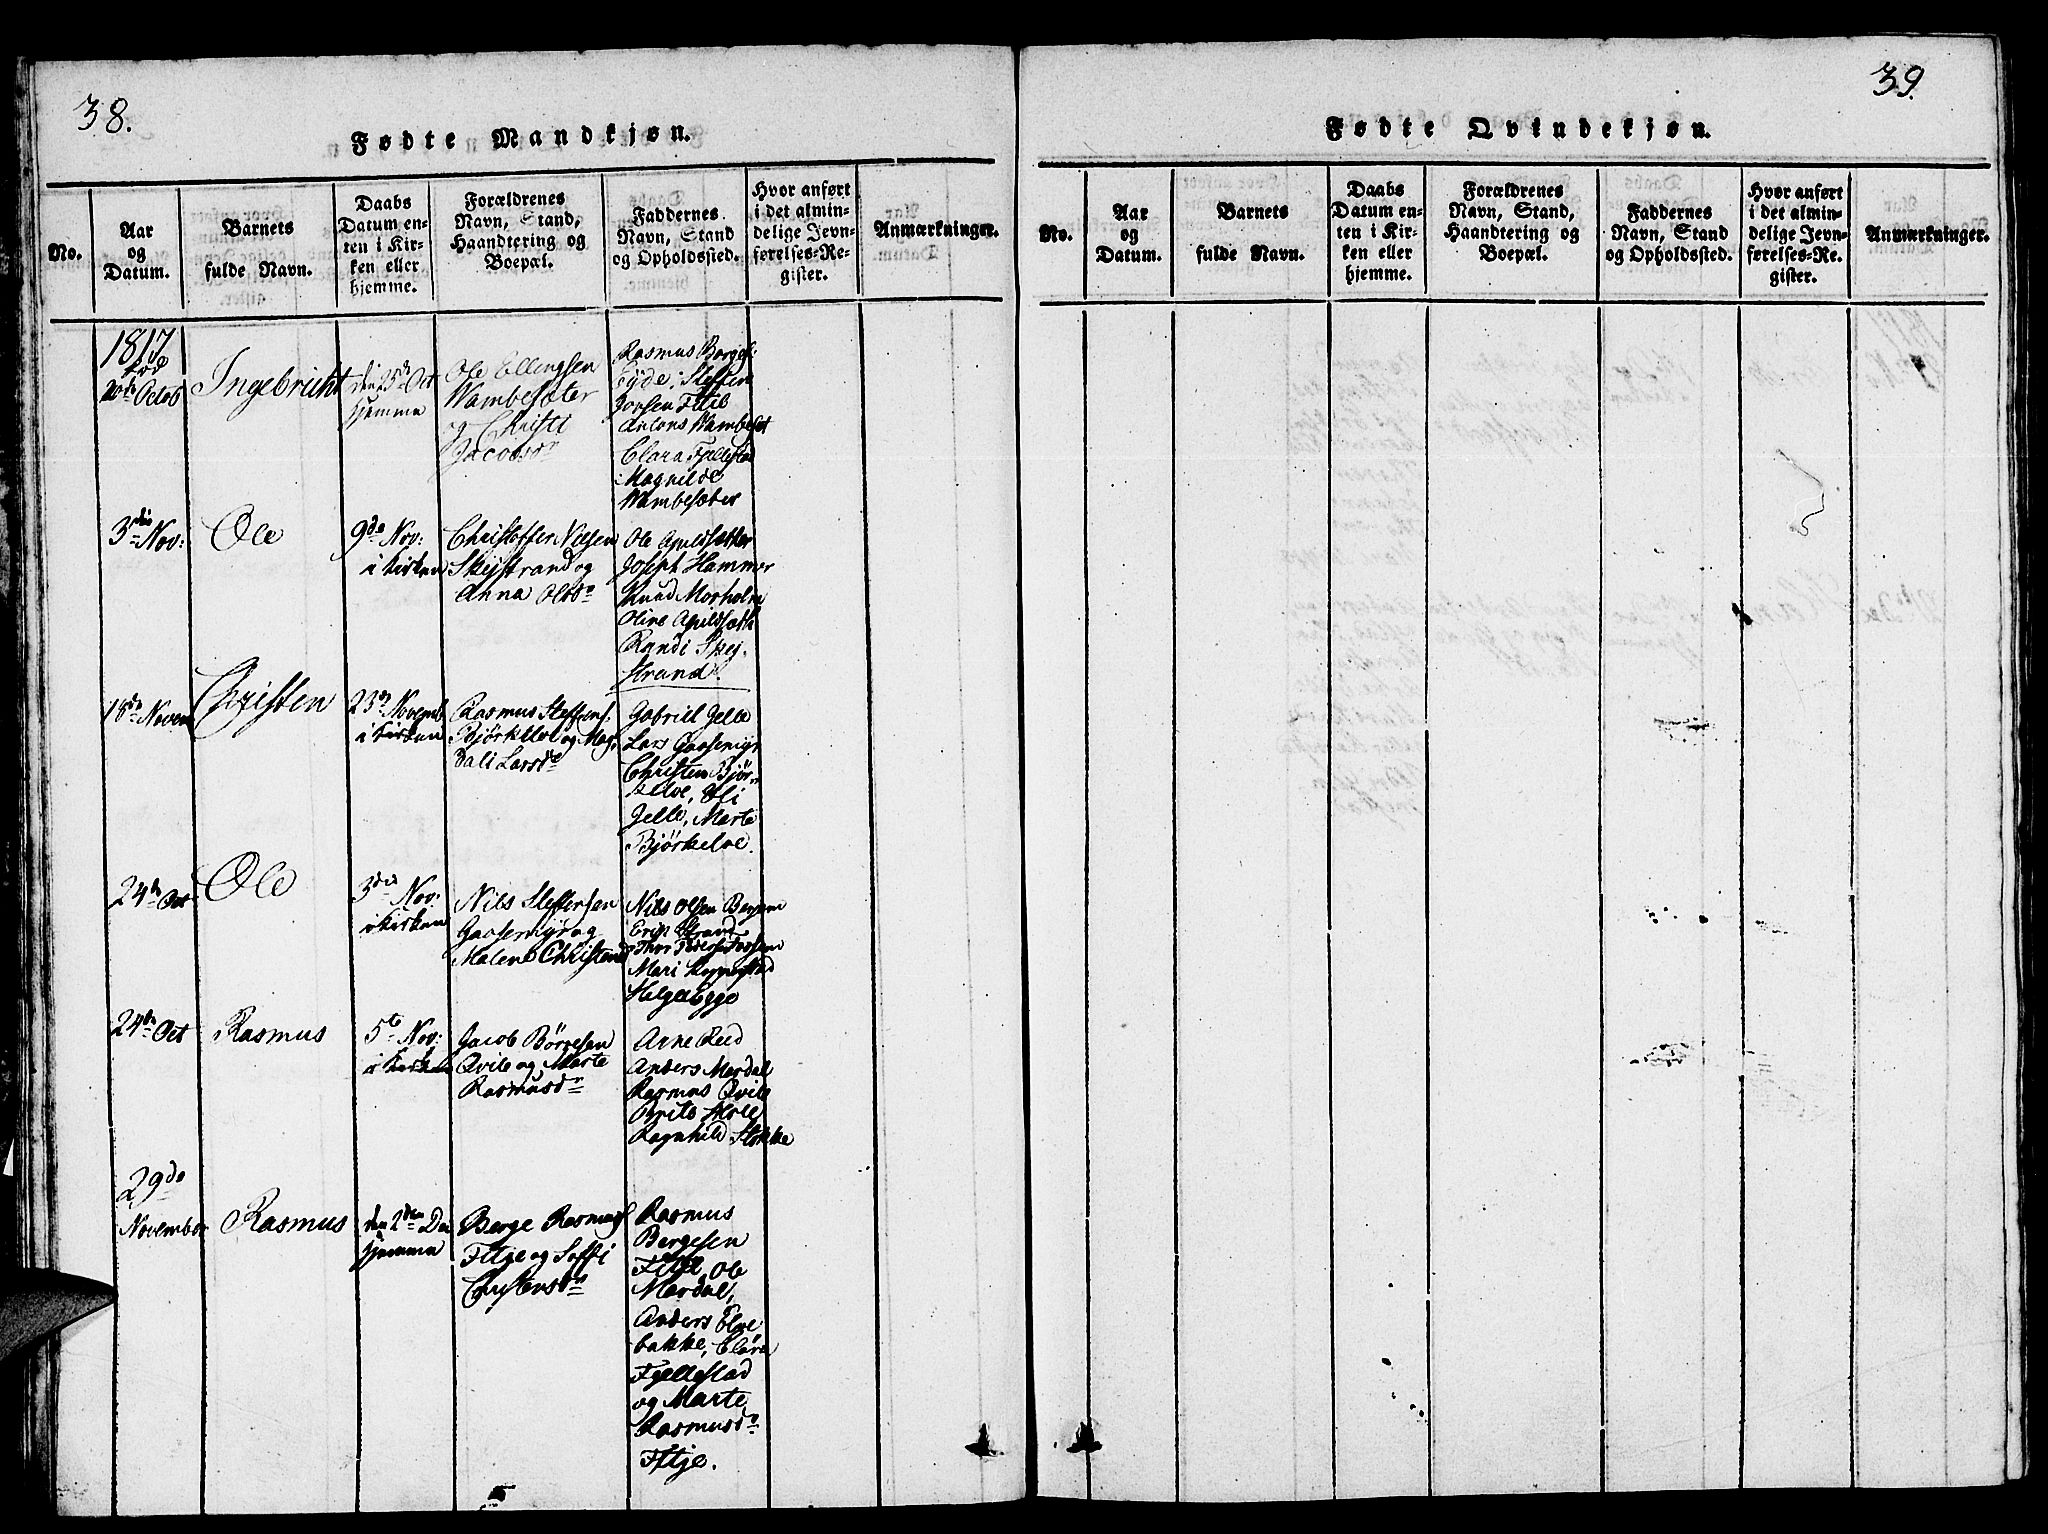 38.
Fødte Mandkjøn.
No.
Aar
og
Datum.
Barnets
fulde Navn.
Daabs
Datum en-
ten i Kir-
ken eller
hjemme.
Forældrenes
Navn, Stand,
Haandtering og
Boepæl.
Faddernes
Navn, Stand
og Opholdssted.
Hvor anført
i det almin-
delige Jevn-
førelses-Re-
gister.
Anmærkninger.
1817
20de Octob
Ingebricht
den 25de Oct
hjemme
Ole Ellingsen
Wambesæter
og Christi
Jacobsdr
Rasmus Borges:
Eyde, Steffen
Jonsen
Wambesæt
Clara Fjellestad
Magnilde
Wambesæter
3die Nov:
Ole
9de Nov:
i kirken
Christoffer Nielsen
Skejstrand og
Anna Olsdr
Ole Apuldsætter
Joseph Hammer
Knud Morholm
Oline Apuldsætt
Randi Skej-
strand
18de Novem
Christen
23de Novemb
i kirken
Rasmus Steffens.
Bjørkelve og Mag-
dali Larsdr
Gabriel Jelle
Lars Gaasemyr
Christen Bjør-
kelve, Eli
Jelle, Marte
Bjørkelve.
24de Oct
Ole
3die Nov:
i kirken
Nils Steffensen
Gaasemyr og
Malene Christensd
Nils Olsen Bergem
Erik Strand
Thor Peders Fossem
Mari
Helge Egge
24de Oct
Rasmus
5te Nov:
i kirken
Jacob Børgesen
Qvile og Marte
Rasmusdr
Arne Reed
Anders Mardal
Rasmus Qvile
Brite Skole
Ragnhild Stokke
29de
November
Rasmus
den 2den Dec
hjemme
Berge Rasmuss
Fitje og Soffi
Christensdr
Rasmus
Bergesen
Fitje, Ole
Mardal,
Anders Elve
bakke, Clara
Fjellestad
og Marte
Rasmusdr
Fitje.
39.
Fødte Qvindekjøn.
No.
Aar
og
Datum.
Barnets
fulde Navn.
Daabs
Datum en-
ten i Kir-
ken eller
hjemme.
Forældrenes
Navn, Stand,
Haandtering og
Boepæl.
Faddernes
Navn, Stand
og Opholdssted.
Hvor anført
i det almin-
delige Jevn-
førelses-Re-
gister.
Anmærkninger.